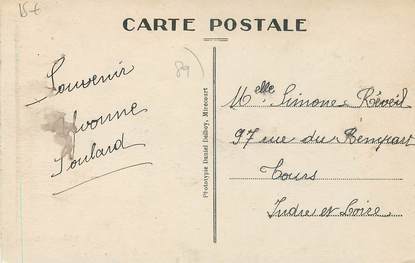 15€
CARTE POSTALE
89)
Souvenir
Yvonne
Soulard
Phototypie Daniel Delboy, Mirecourt
Melle Simone Réveil
97 rue du Rempart
Tours
Indre et Loire